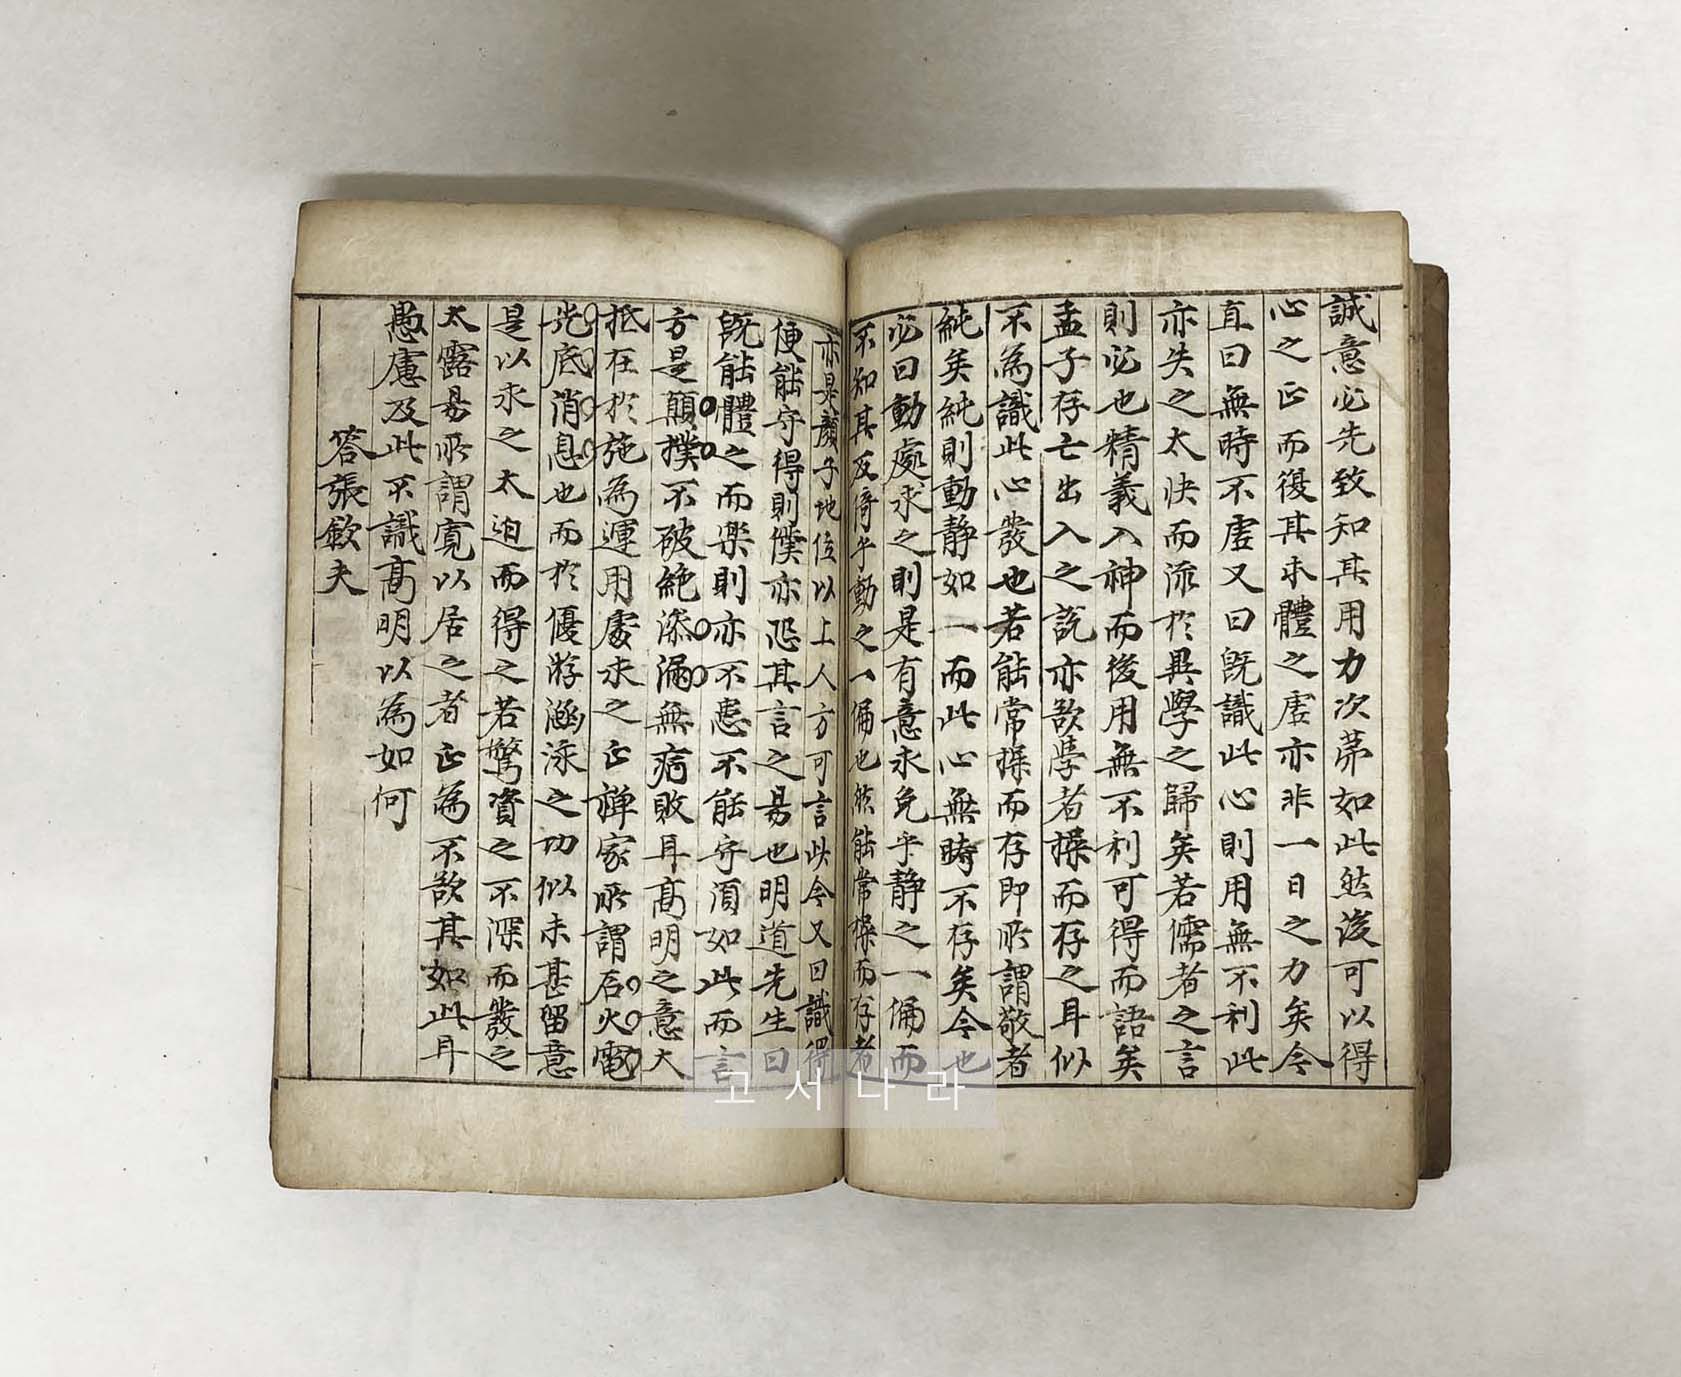 誠意必先致知其用力次苐如此然後可以得
心之正而復其未體之虗亦非一日之力矣今
直曰無時不虗又曰旣識此心則用無不利此
亦失之太快而流於異學之歸矣若儒者之言
則必也精義入神而後用無不利可得而語矣
孟子存亡出入之說亦欲學者操而存之耳似
不為識此心發也若能常操而存即所謂敬者
純矣純則動静如一而此心無時不存矣今也
必曰動處求之則是有意求免乎静之一偏而
不知其反倚乎動之一偏也然能常操而存者
亦是顏子地位以上人方可言此今又曰識得
便能守得則僕亦恐其言之易也明道先生曰
旣能體之而楽則亦不患不能守須如此而言
方是顚撲不破絶滲漏無病敗耳高明之意大
抵在於施為運用處求之正禅家所謂石火電
光底消息也而於優游涵泳之功似未甚留意
是以求之太迫而得之若驚資之不深而發之
太露易所謂寛以居之者正為不欲其如此耳
愚慮及此不識高明以為如何
答張欽夫
고서나라